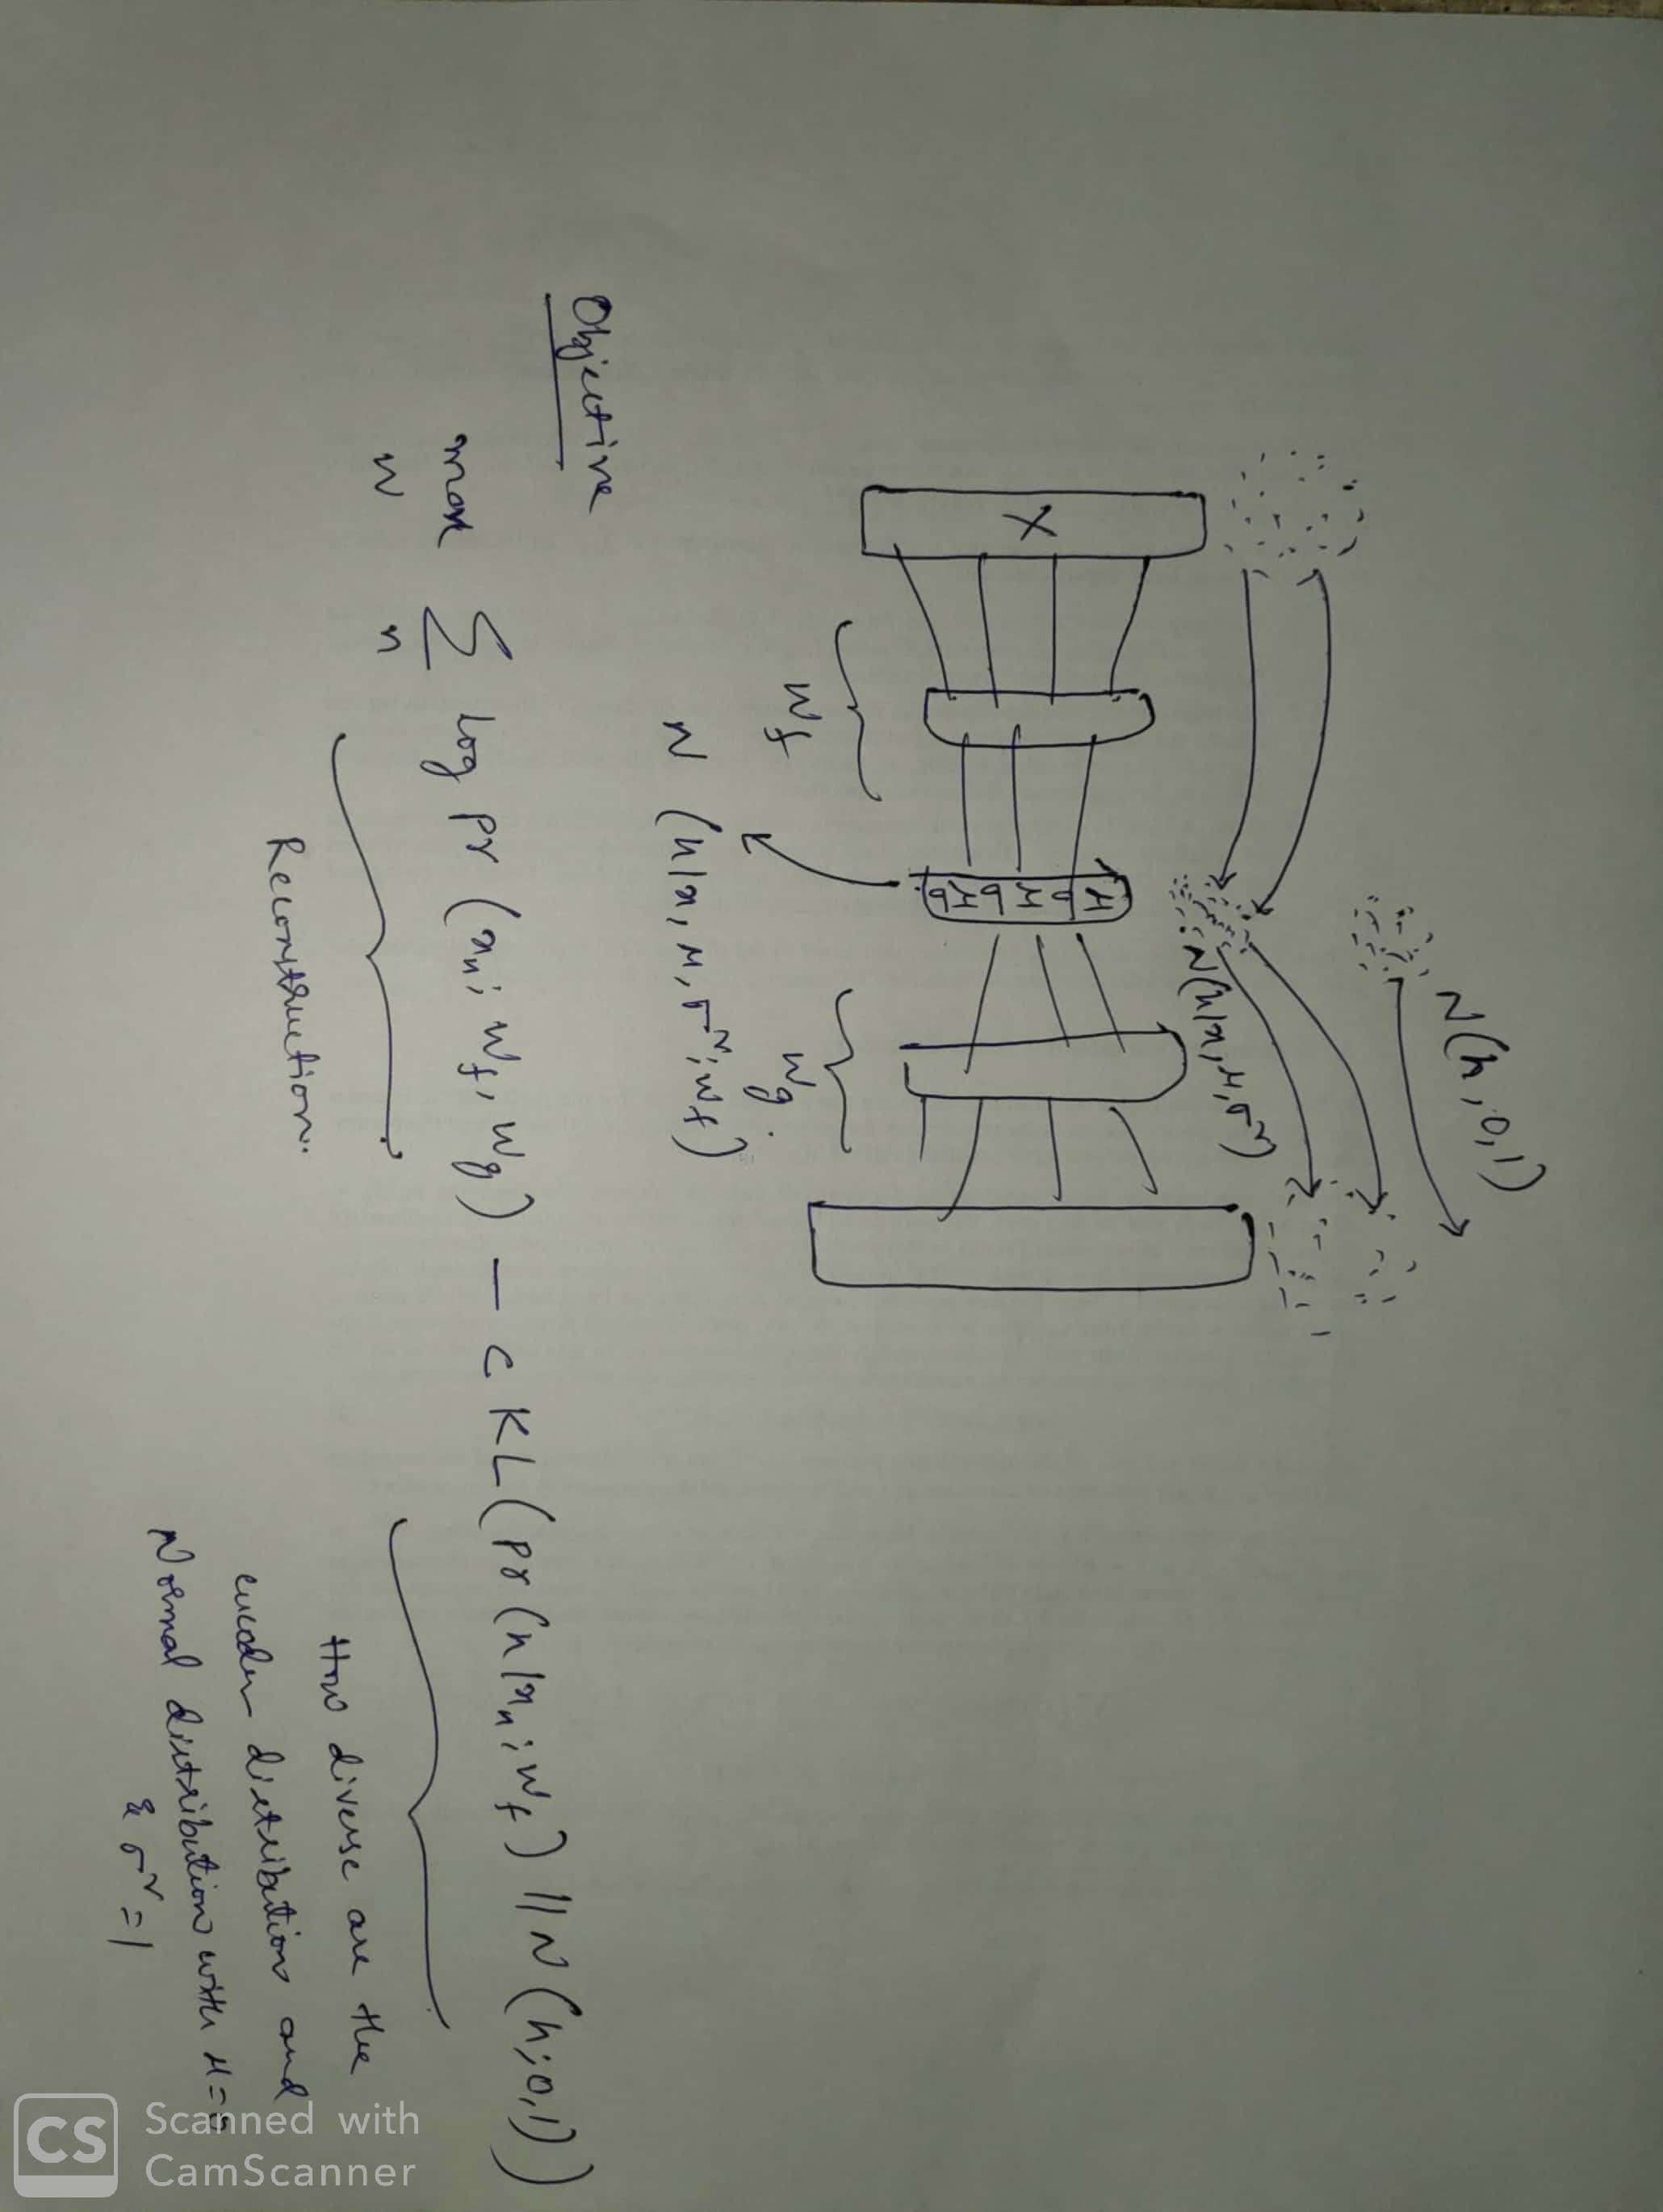 N(h, 0, 1)
N(h|x, μ, σ²)
X
μ σ μ σ μ σ
W_f
W_g
N (h|x, μ, σ²; W_f)
Objective
max Σ log Pr (x_n; W_f, W_g) - C KL (Pr (h|x_n; W_f) || N (h; 0, 1))
W n
Reconstruction.
How diverse are the
encoder distribution and
Normal distribution with μ=0
& σ² = 1
CS Scanned with
CamScanner